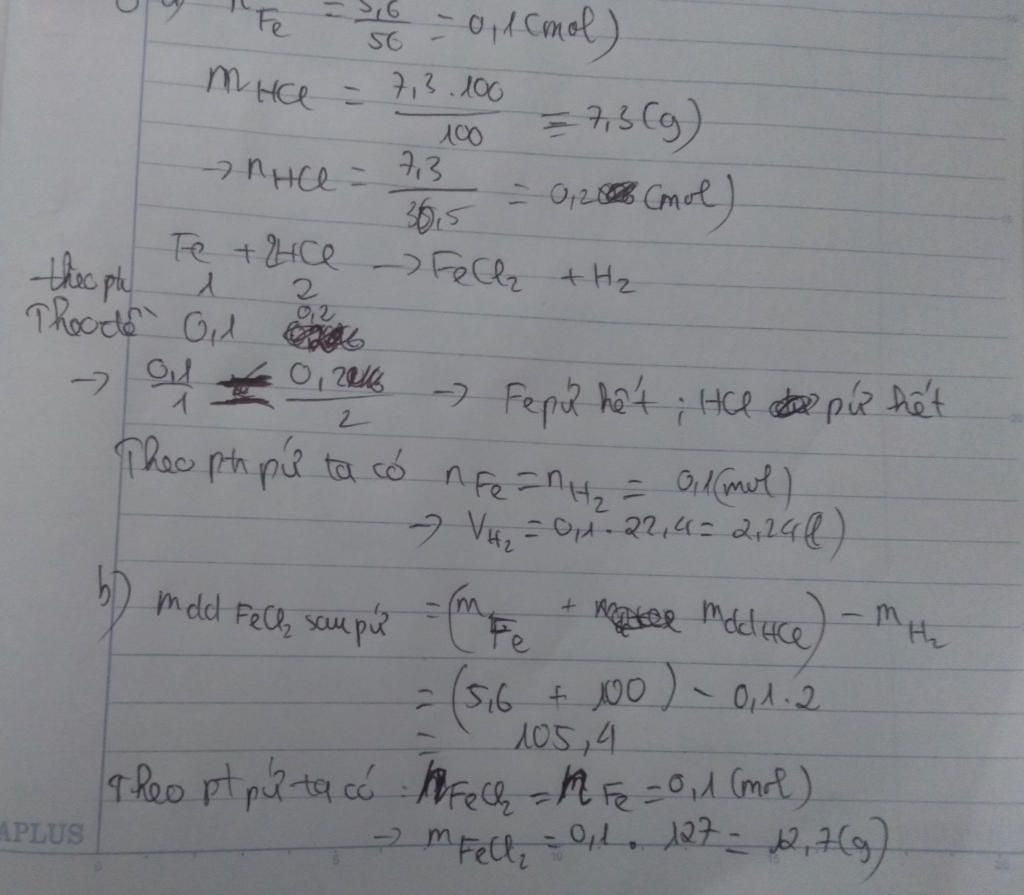 a) n Fe = 5,6/56 = 0,1 (mol)
m HCl = 7,3 . 100/100 = 7,3 (g)
→ n HCl = 7,3/36,5 = 0,2 (mol)
Fe + 2HCl → FeCl₂ + H₂
theo ph 1 2
Theo đề 0,1 0,2
→ 0,1/1 = 0,2/2 → Fe pứ hết ; HCl pứ hết
Theo ph pứ ta có n Fe = n H₂ = 0,1 (mol)
→ V H₂ = 0,1 . 22,4 = 2,24 (l)
b) mdd FeCl₂ sau pứ = (m Fe + mdd HCl) - m H₂
= (5,6 + 100) - 0,1 . 2
= 105,4
Theo pt pứ ta có : n FeCl₂ = n Fe = 0,1 (mol)
→ m FeCl₂ = 0,1 . 127 = 12,7 (g)
APLUS